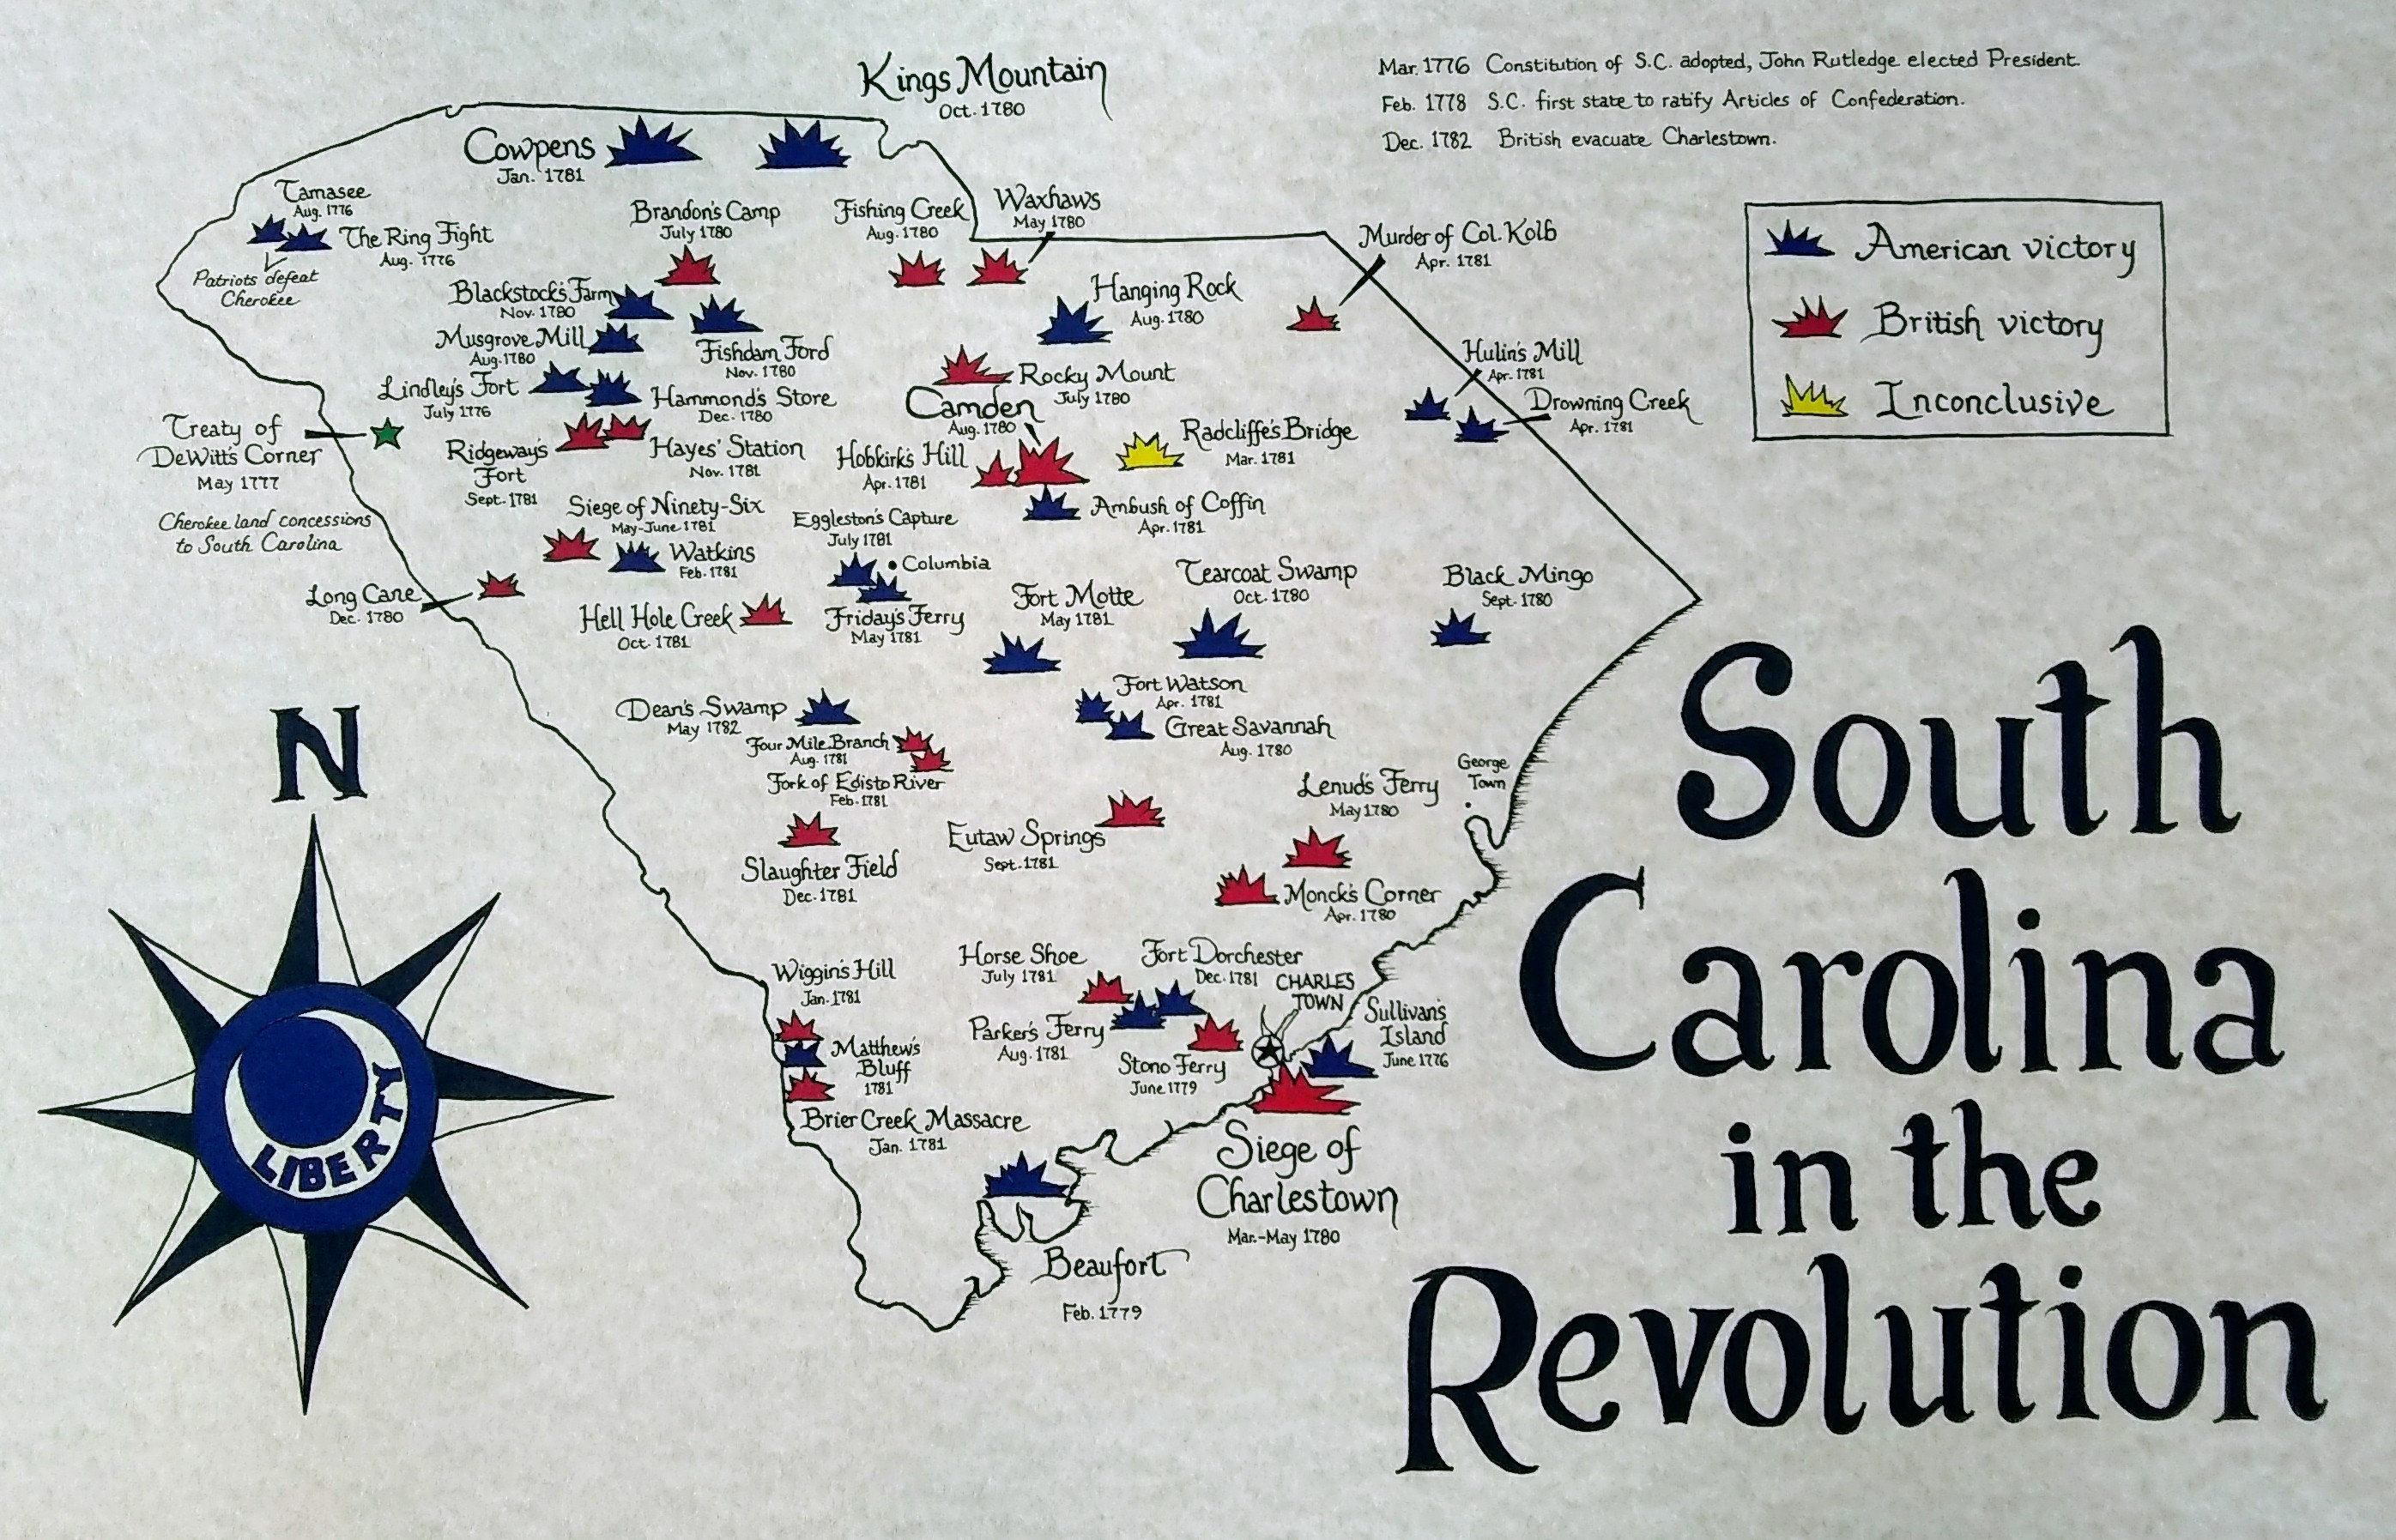 Kings Mountain
Oct. 1780
Mar. 1776 Constitution of S.C. adopted, John Rutledge elected President.
Feb. 1778 S.C. first state to ratify Articles of Confederation.
Dec. 1782 British evacuate Charlestown.
Cowpens
Jan. 1781
Tamasee
Aug. 1776
The Ring Fight
Aug. 1776
Patriots defeat
Cherokee
Brandon's Camp
July 1780
Fishing Creek
Aug. 1780
Waxhaws
May 1780
Murder of Col. Kolb
Apr. 1781
American victory
British victory
Inconclusive
Blackstock's Farm
Nov. 1780
Hanging Rock
Aug. 1780
Musgrove Mill
Aug. 1780
Fishdam Ford
Nov. 1780
Hulin's Mill
Apr. 1781
Lindley's Fort
July 1776
Hammond's Store
Dec. 1780
Rocky Mount
July 1780
Camden
Aug. 1780
Drowning Creek
Apr. 1781
Treaty of
DeWitt's Corner
May 1777
Ridgeway's
Fort
Sept. 1781
Hayes' Station
Nov. 1781
Hobkirk's Hill
Apr. 1781
Radcliffe's Bridge
Mar. 1781
Cherokee land concessions
to South Carolina
Siege of Ninety-Six
May-June 1781
Eggleston's Capture
July 1781
Ambush of Coffin
Apr. 1781
Watkins
Feb. 1781
Columbia
Long Cane
Dec. 1780
Hell Hole Creek
Oct. 1781
Friday's Ferry
May 1781
Fort Motte
May 1781
Tearcoat Swamp
Oct. 1780
Black Mingo
Sept. 1780
Dean's Swamp
May 1782
Fort Watson
Apr. 1781
Great Savannah
Aug. 1780
Four Mile Branch
Aug. 1781
Fork of Edisto River
Feb. 1781
Lenud's Ferry
May 1780
George
Town
Eutaw Springs
Sept. 1781
Slaughter Field
Dec. 1781
Monck's Corner
Apr. 1780
Wiggin's Hill
Jan. 1781
Horse Shoe
July 1781
Fort Dorchester
Dec. 1781
CHARLES
TOWN
Sullivan's
Island
June 1776
Parker's Ferry
Aug. 1781
Stono Ferry
June 1779
Matthew's
Bluff
1781
Brier Creek Massacre
Jan. 1781
Siege of
Charlestown
Mar.-May 1780
Beaufort
Feb. 1779
N
LIBERTY
South
Carolina
in the
Revolution